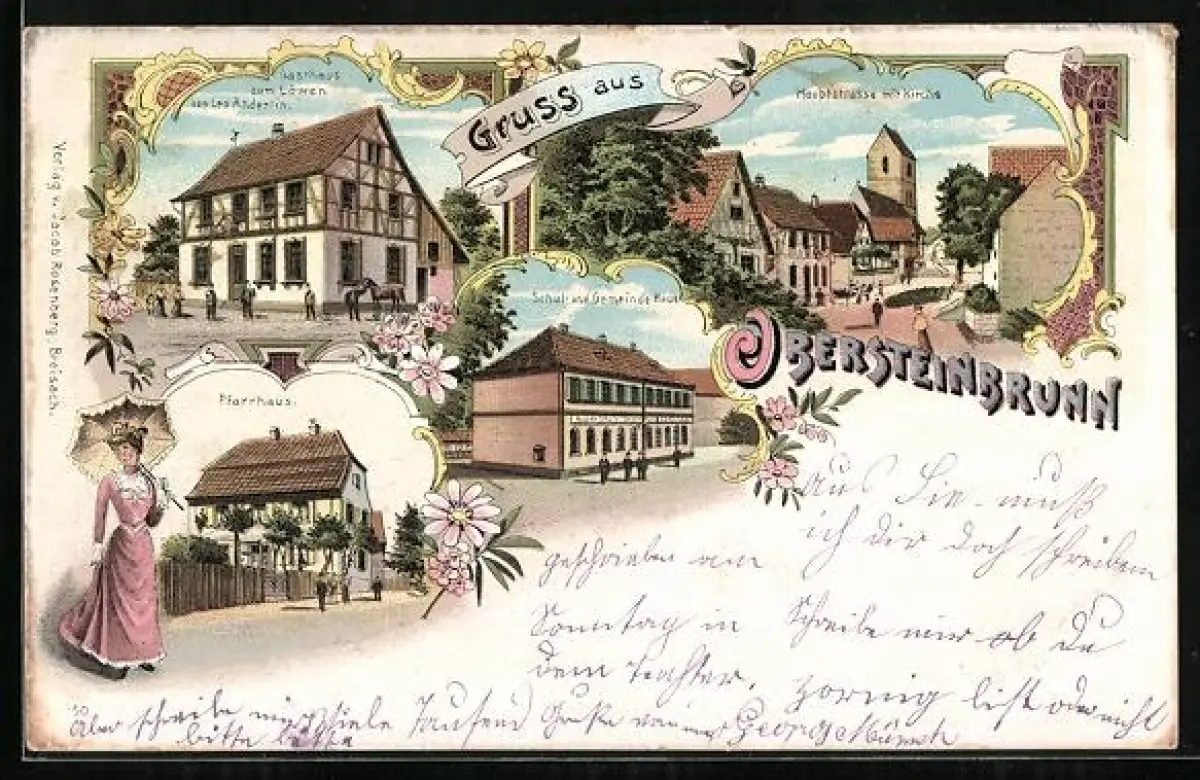 Gruss aus
Obersteinbrunn
Gasthaus
zum Löwen
von Leo Änderlin.
Hauptstrasse mit Kirche
Schul- und Gemeinde Haus
Pfarrhaus.
Verlag v. Jacob Rosenberg, Breisach.
Aus Sie muß
ich dir doch schreiben
Schreibe mir ob du
zornig bist oder nicht
geschrieben am
Sonntag in
dem
Aber schreibe mir viele Tausend Grüße von George
bitte bitte